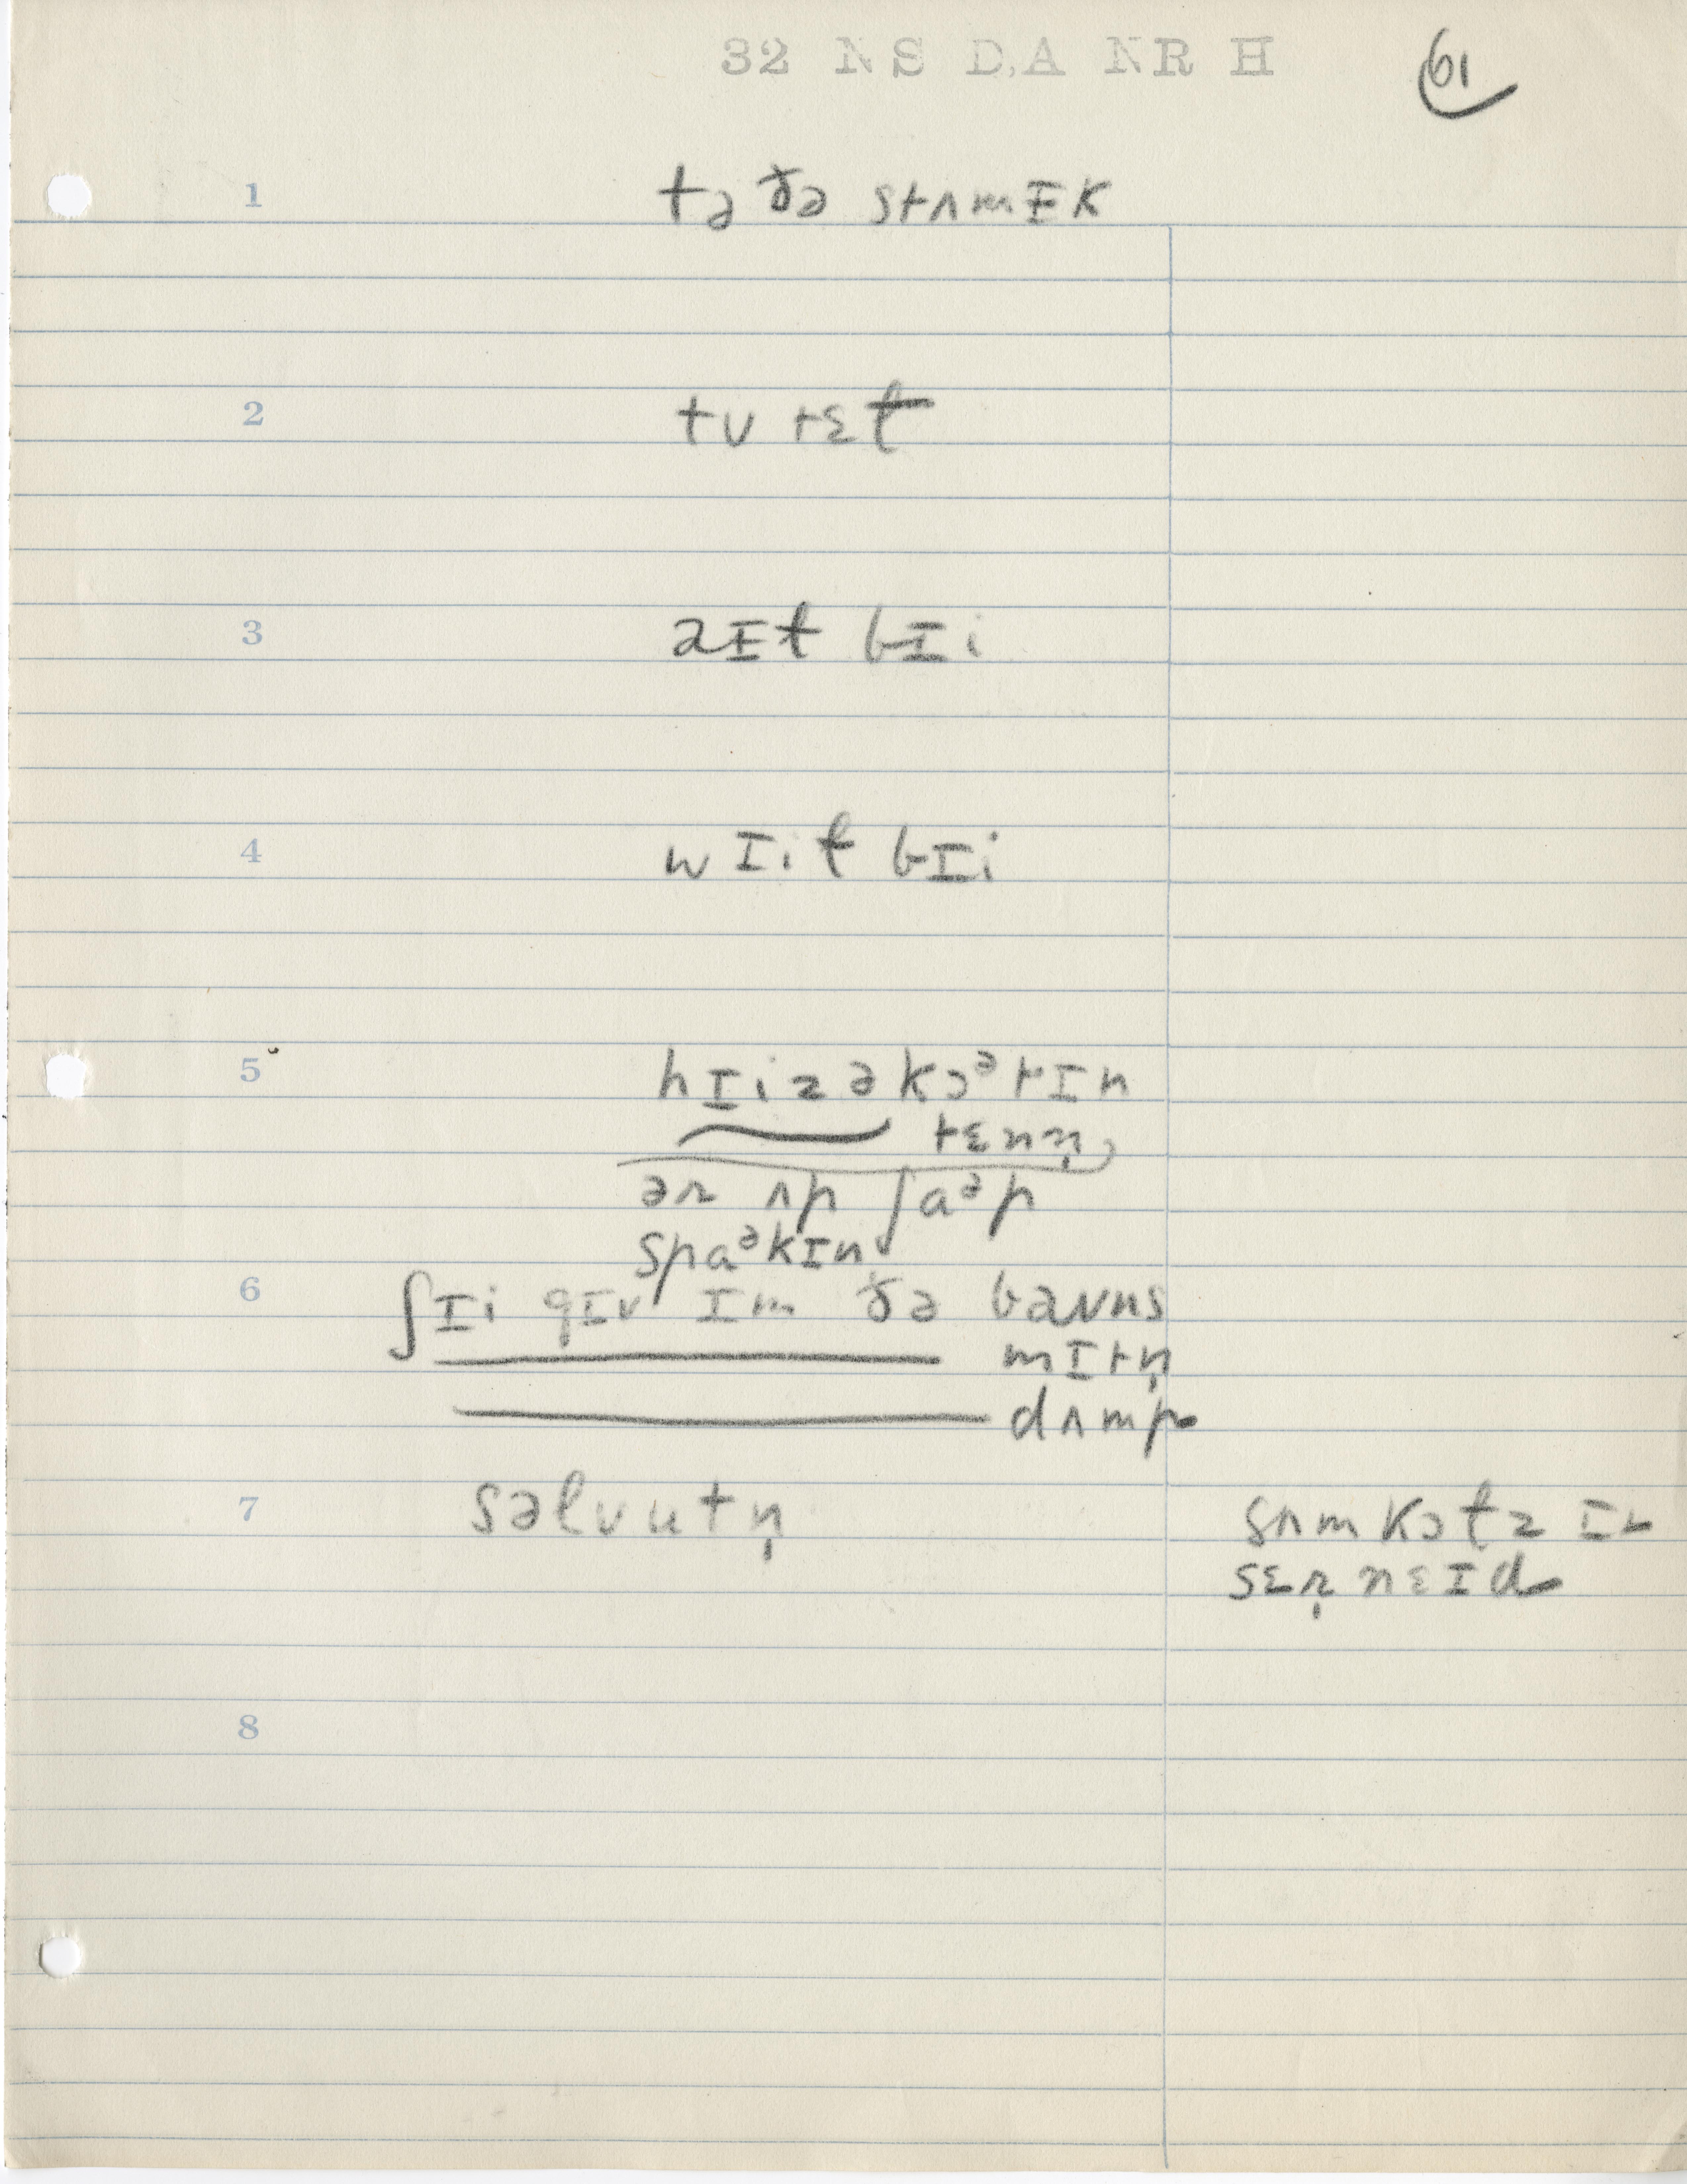 32 NS D,A NR H
61
1 tə ðə stʌmɪ̵k
2 tʊ rɛɫ
3 aɪ̵ɫ bɪi
4 wɪiɫ bɪi
5 hɪiz ə kɔᵊrɪn
rɛnn̩
ən ʌp ʃaᵊp
spaᵊkɪn
6 ʃɪi gɪv ɪm ðə baʊns
mɪtn̩
dʌmp
7 salvutn̩
sʌmkɔɫz ɪt
sɛɾneɪd
8